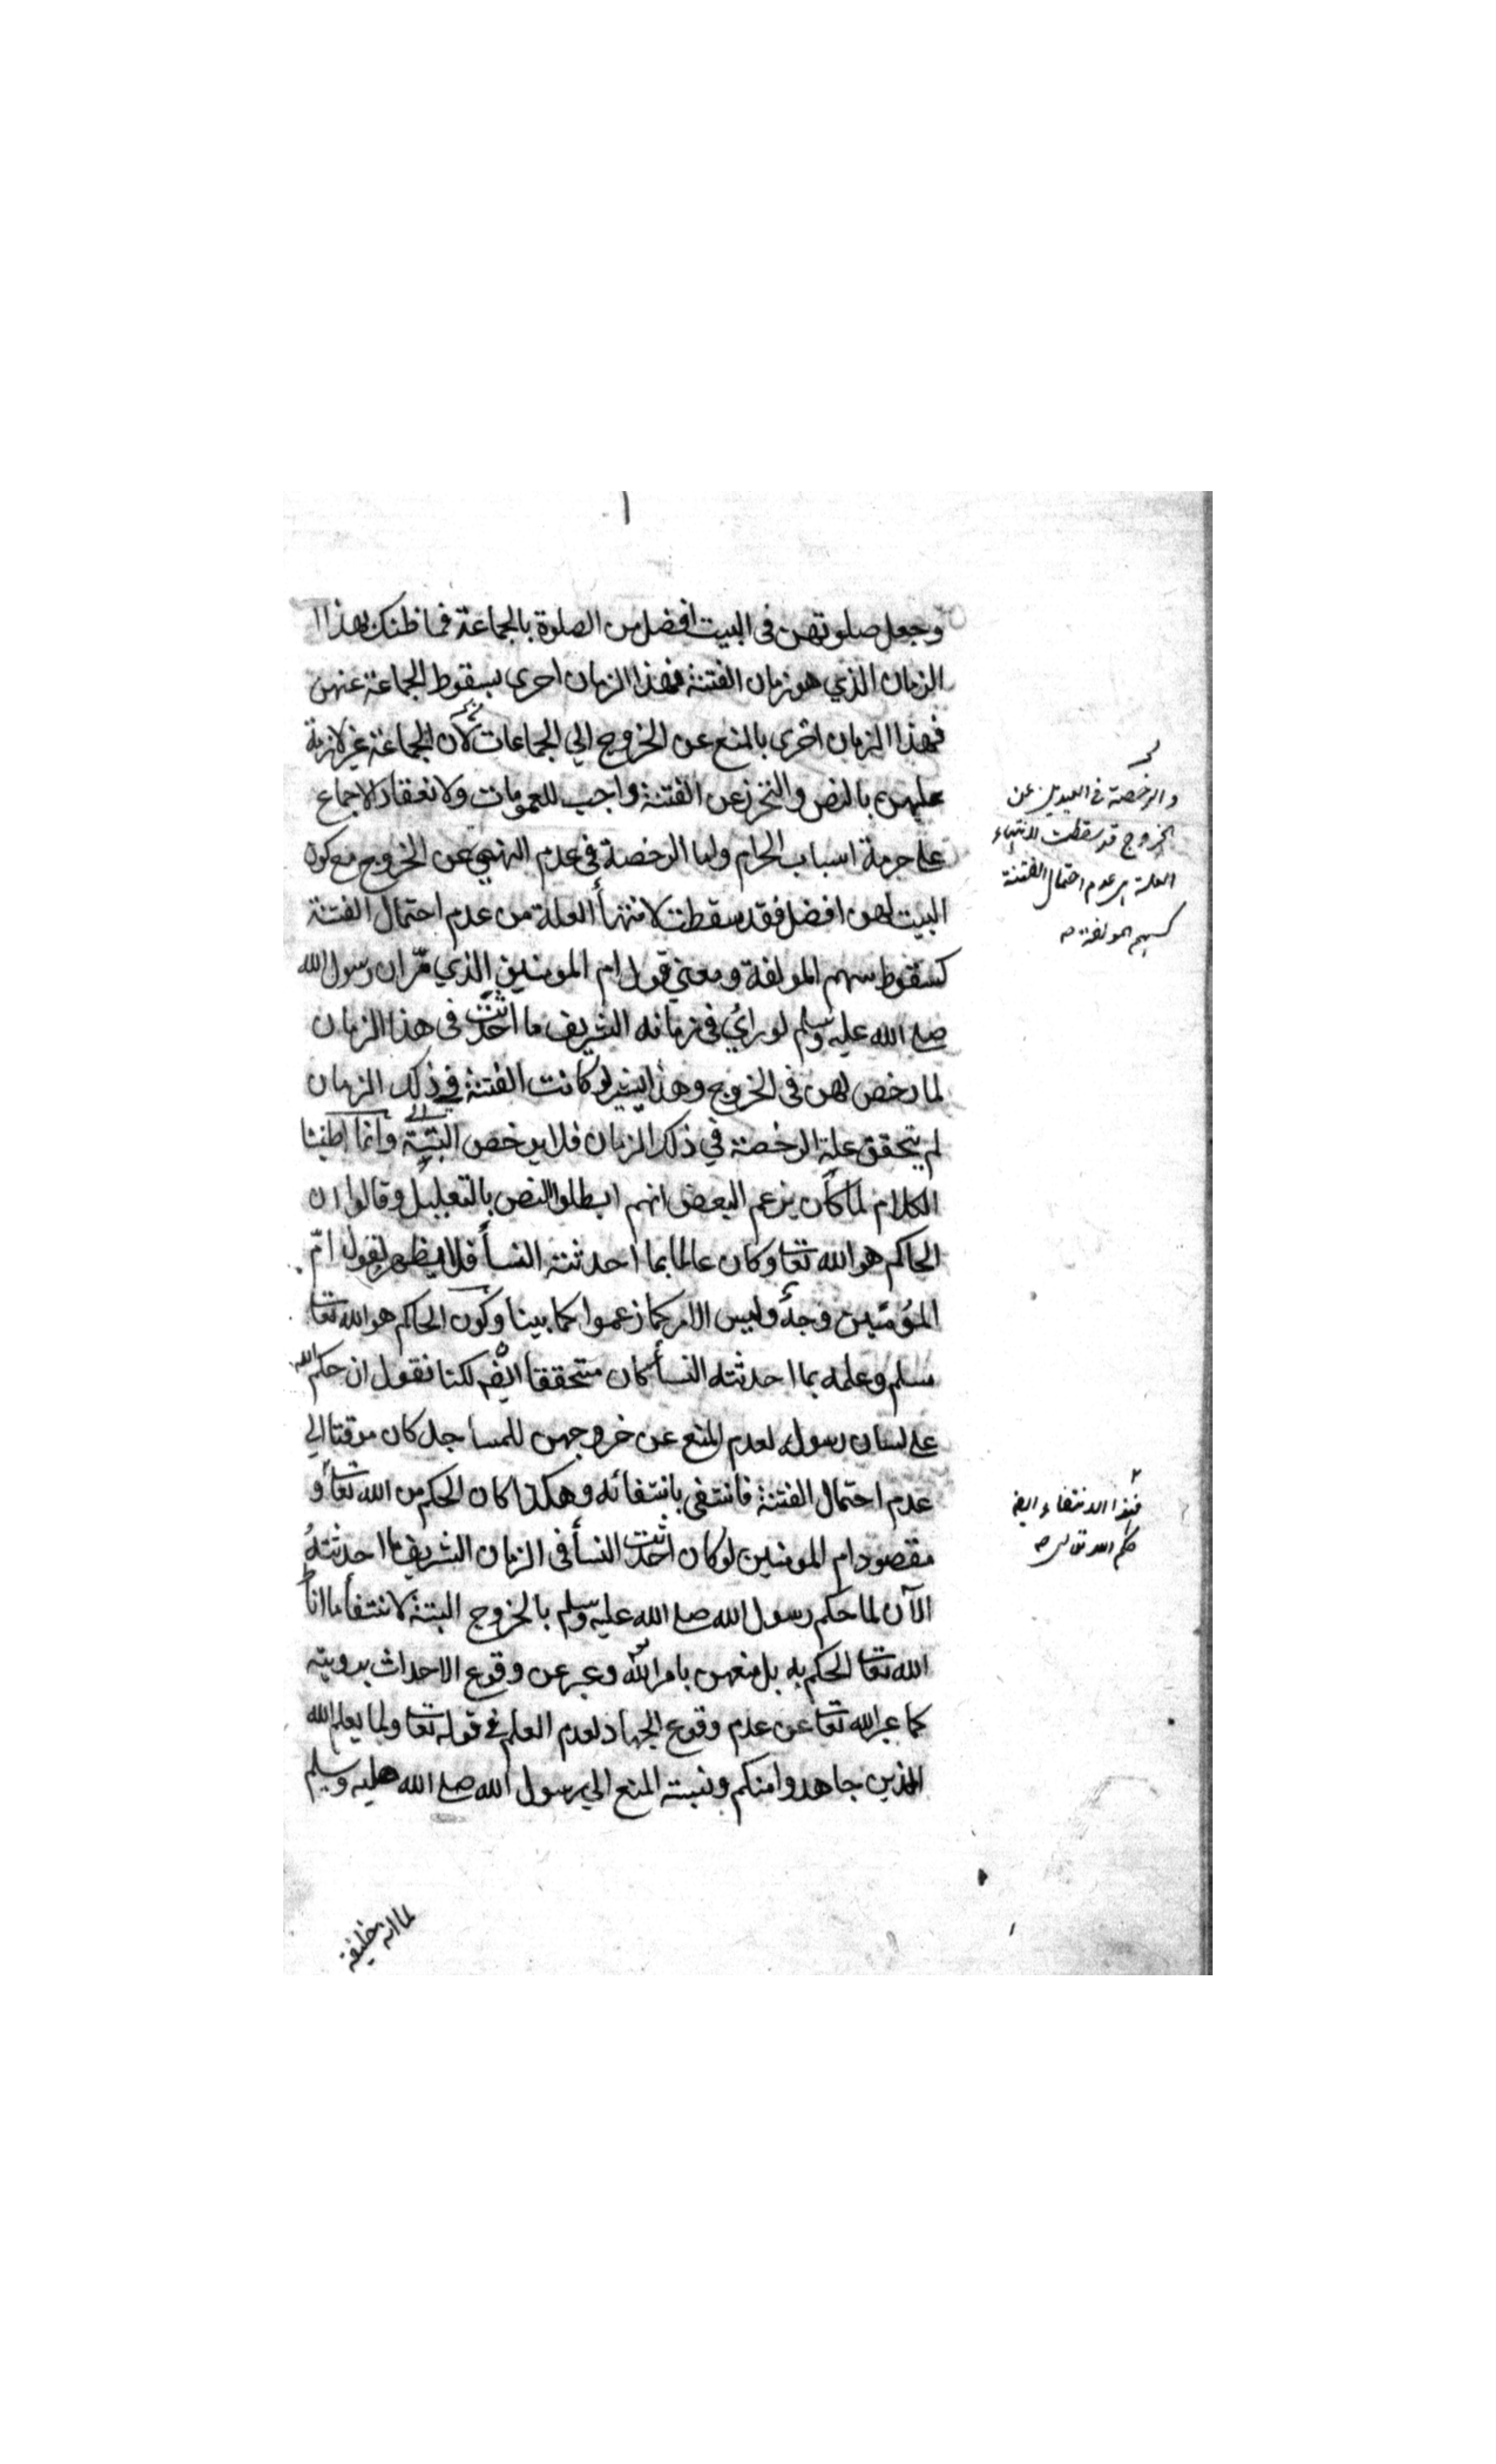 وجعل صلوتهن في البيت افضل من الصلوة بالجماعة فما ظنك بهذا
الزمان الذي هو زمان الفتنة فهذا الزمان احرى بسقوط الجماعة عنهن
فهذا الزمان احرى بالمنع عن الخروج الي الجماعات لان الجماعة غير لازمة
عليهن بالنص والتحرز عن الفتنة واجب للعمومات ولانعقاد الاجماع
علي حرمة اسباب الحرام واما الرخصة في عدم النهي عن الخروج مع كون
البيت لهن افضل فقد سقطت لانتهأ العلة من عدم احتمال الفتنة
كسقوط سهم المولفة ومعني قول ام المومنين الذي مرّ ان رسول الله
صلي الله عليه وسلم لو رأي في زمانه الشريف ما احدثت في هذا الزمان
لما رخص لهن في الخروج وهذا لو كانت الفتنة في ذلك الزمان
لم يتحقق علة الرخصة في ذلك الزمان فلا يرخص البتة وانما اطنبنا
الكلام لما كان يزعم البعض انهم ابطلوا النص بالتعليل وقالوا ان
الحاكم هو الله تعا وكان عالما بما احدثته النسأ فلا يظهر لقول امّ
المؤمنين وجه وليس الامر كما زعموا كما بينا وكون الحاكم هو الله تعا
مسلم وعلمه بما احدثته النسأ كان متحققا ايضه لكنا نقول ان حكم الله
علي لسان رسوله لعدم المنع عن خروجهن للمساجد كان موقتا الي
عدم احتمال الفتنة فانتفي بانتفائه وهكذا كان الحكم من الله تعا و
مقصود ام المومنين لو كان احدثت النسأ في الزمان الشريف ما احدثته
الآن لما حكم رسول الله صلي الله عليه وسلم بالخروج البتة لانتفأ ما اناط
الله تعا الحكم به بل منعهن بامر الله وعبر عن وقوع الاحداث برويته
كما عبر الله تعا عن عدم وقوع الجهاد لعدم العلم في قوله تعا ولما يعلم الله
الذين جاهدوا منكم ونسبته المنع الي رسول الله صلي الله عليه وسلم
لما انه خليفة
والرخصة في العيدين عن
الخروج قد سقطت لانتهاء
العلة من عدم احتمال الفتنة
كسهم المولفة
فهذا الانتفاء ايضا
حكم الله تعالى